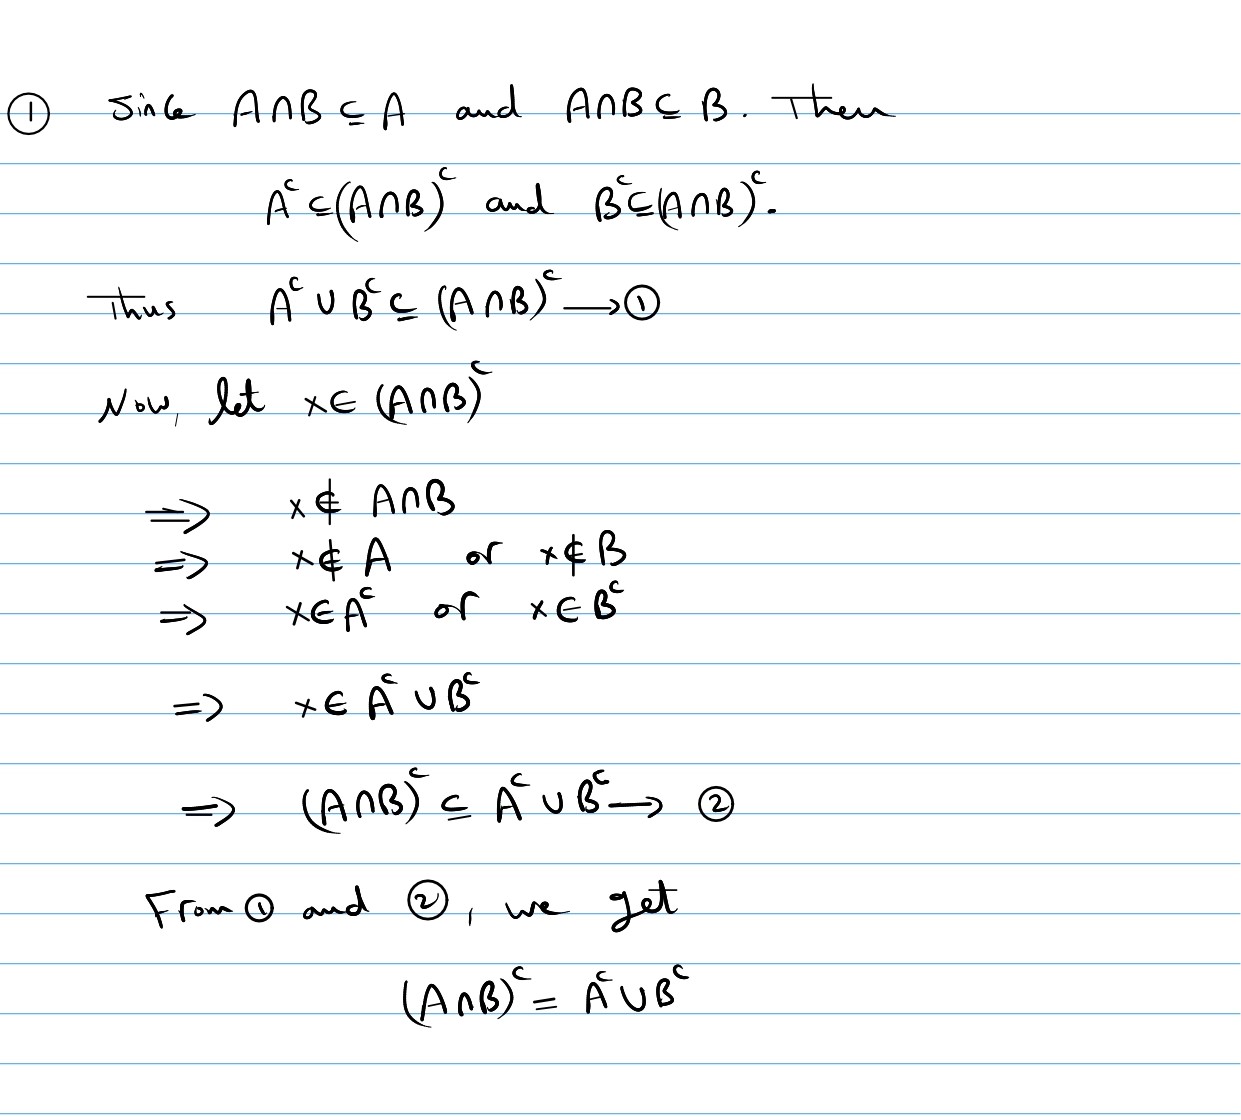 ① Since A∩B ⊆ A and A∩B ⊆ B. Then
Aᶜ ⊆ (A∩B)ᶜ and Bᶜ ⊆ (A∩B)ᶜ.
Thus Aᶜ ∪ Bᶜ ⊆ (A∩B)ᶜ ⟶ ①
Now, let x ∈ (A∩B)ᶜ
⇒ x ∉ A∩B
⇒ x ∉ A or x ∉ B
⇒ x ∈ Aᶜ or x ∈ Bᶜ
⇒ x ∈ Aᶜ ∪ Bᶜ
⇒ (A∩B)ᶜ ⊆ Aᶜ ∪ Bᶜ ⟶ ②
From ① and ②, we get
(A∩B)ᶜ = Aᶜ ∪ Bᶜ